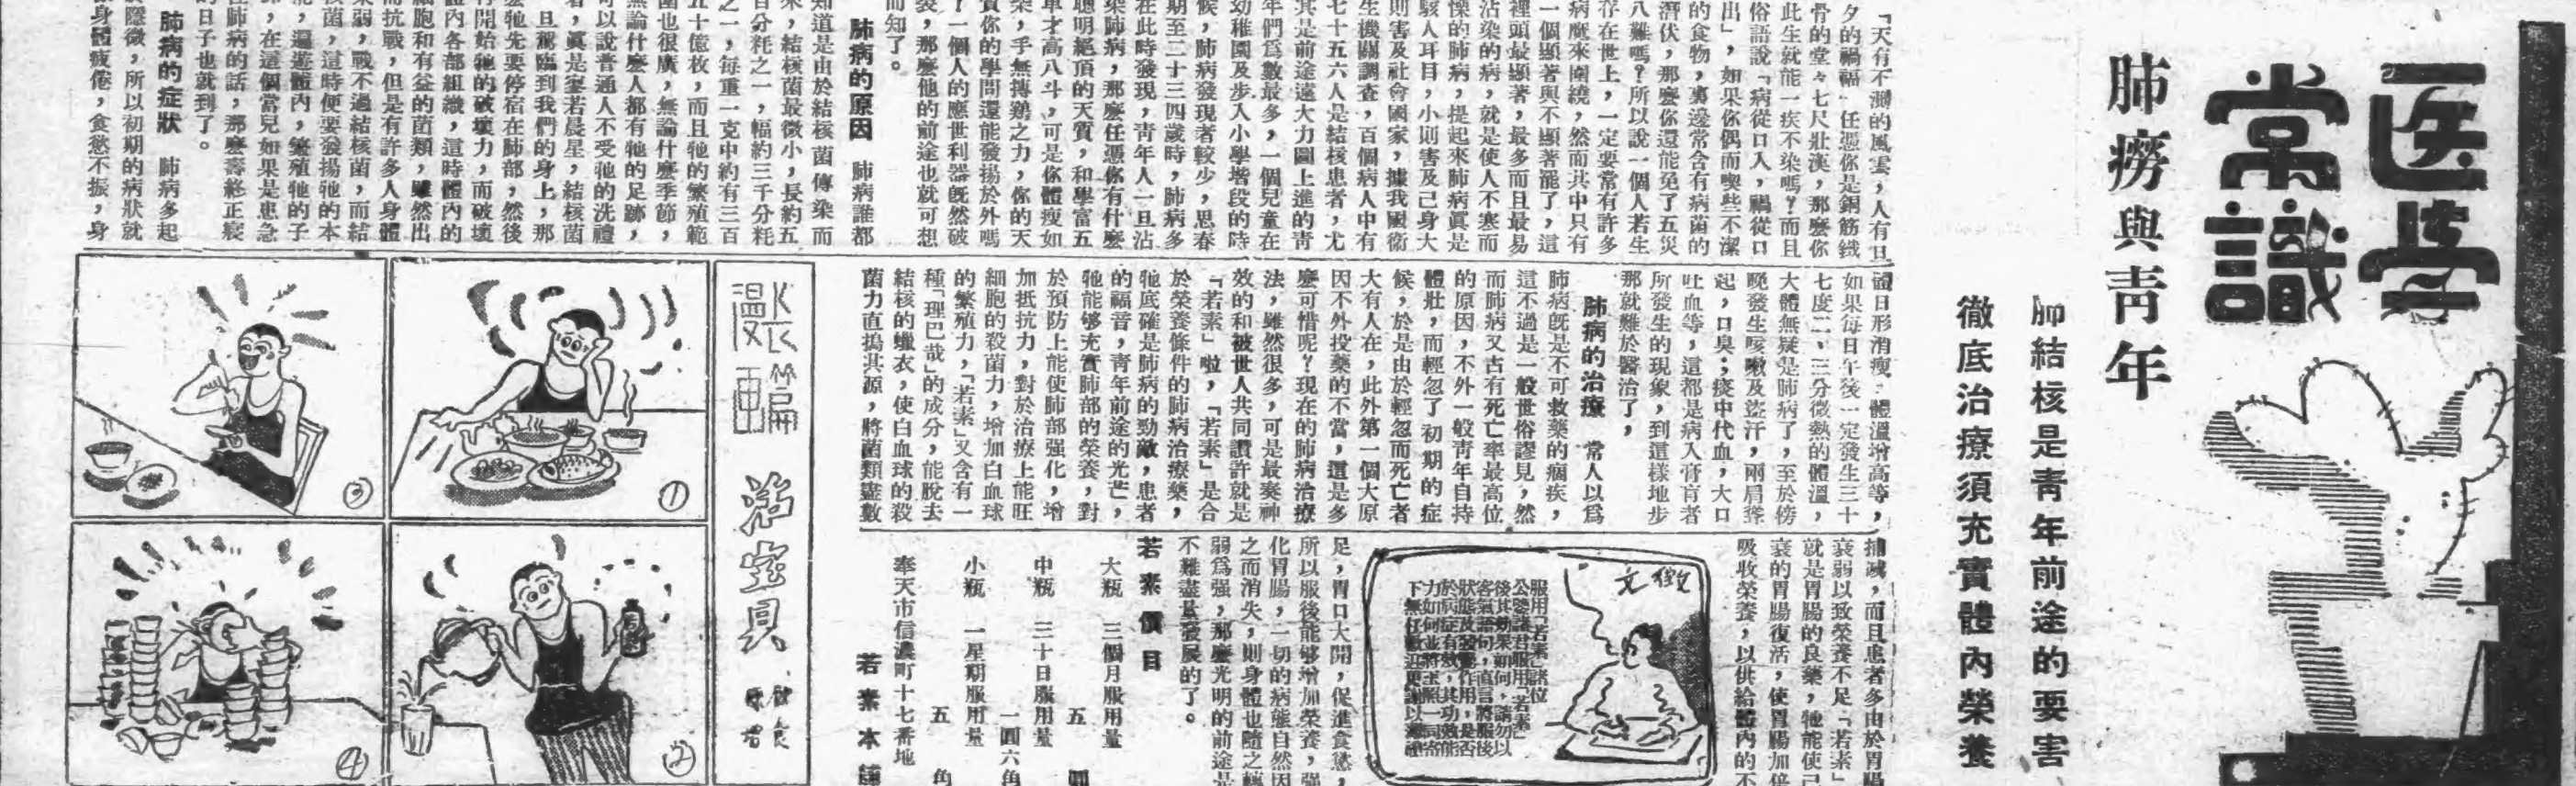 医學
常識
肺癆與青年
肺結核是青年前途的要害
徹底治療須充實體內榮養
「天有不測的風雲，人有旦
夕的禍福」任憑你是銅筋鐵
骨的堂々七尺壯漢，那麼你
此生就能一疾不染嗎？而且
俗語說「病從口入，禍從口
出」，如果你偶而喫些不潔
的食物，裏邊常含有病菌的
潛伏，那麼你還能免了五災
八難嗎？所以說一個人若生
存在世上，一定要常有許多
病魔來圍繞，然而其中只有
一個顯著與不顯著罷了，這
裡頭最顯著，最多而且最易
沾染的病，就是使人不寒而
慄的肺病，提起來肺病眞是
駭人耳目，小則害及己身大
則害及社會國家，據我國衞
生機關調查，百個病人中有
七十五六人是結核患者，尤
其是前途遠大力圖上進的靑
年們爲數最多，一個兒童在
幼稚園及步入小學堦段的時
候，肺病發現者較少，思春
期至二十三四歲時，肺病多
在此時發現，靑年人一旦沾
染肺病，那麼任憑你有什麼
聰明絕頂的天質，和學富五
車才高八斗，可是你體瘦如
柴，手無搏鷄之力，你的天
質你的學問還能發揚於外嗎
了一個人的應世利器旣然破
裂，那麼他的前途也就可想
而知了。
肺病的原因　肺病誰都
知道是由於結核菌傳染而
來，結核菌最微小，長約五
百分粍之一，幅約三千分粍
之一，每重一克中約有三百
五十億枚，而且牠的繁殖範
圍也很廣，無論什麼季節，
無論什麼人都有牠的足跡，
可以說普通人不受牠的洗禮
者，眞是寥若晨星，結核菌
一旦駕臨到我們的身上，那
麼牠先要停宿在肺部，然後
再開始牠的破壞力，而破壞
體內各部組織，這時體內的
細胞和有益的菌類，雖然出
而抗戰，但是有許多人身體
衰弱，戰不過結核菌，而結
核菌，這時便要發揚牠的本
能，遍遊體內，繁殖牠的子
孫，在這個當兒如果是患急
性肺病的話，那麼壽終正寢
的日子也就到了。
肺病的症狀　肺病多起
於隱微，所以初期的病狀就
很身體疲倦，食慾不振，身
體日形消瘦，體溫增高等，
如果每日午後一定發生三十
七度二、三分微熱的體溫，
大體無疑是肺病了，至於傍
晚發生咳嗽及盜汗，兩肩聳
起，口臭；痰中代血，大口
吐血等，這都是病入膏肓者
所發生的現象，到這樣地步
那就難於醫治了，
肺病的治療　常人以爲
肺病旣是不可救藥的痼疾，
這不過是一般世俗謬見，然
而肺病又古有死亡率最高位
的原因，不外一般靑年自持
體壯，而輕忽了初期的症
候，於是由於輕忽而死亡者
大有人在，此外第一個大原
因不外投藥的不當，這是多
麼可惜呢？現在的肺病治療
法，雖然很多，可是最奏神
效的和被世人共同讚許就是
「若素」啦，「若素」是合
於榮養條件的肺病治療藥，
牠底確是肺病的勁敵，患者
的福音，靑年前途的光芒，
牠能够充實肺部的榮養，對
於預防上能使肺部强化，增
加抵抗力，對於治療上能旺
細胞的殺菌力，增加白血球
的繁殖力，「若素」又含有一
種「理巴哉」的成分，能脫去
結核的蠟衣，使白血球的殺
菌力直搗其源，將菌類盡數
捕滅，而且患者多由於胃腸
衰弱以致榮養不足「若素」
就是胃腸的良藥，牠能使已
衰的胃腸復活，使胃腸加倍
吸收榮養，以供給體內的不
足，胃口大開，促進食慾，
所以服後能够增加榮養，强
化胃腸，一切的病態自然因
之而消失，則身體也隨之轉
弱爲强，那麼光明的前途是
不難盡量發展的了。
徵文
服用「若素」諸位
公鑒諸君服用「若素」
後其効果如何，請勿以
客氣語句，直言將服後
狀態及發響作用，是否
於病症有效，其功效能
力如何並將玉照一同寄
下無任歡迎更謝以薄禮
若素價目
大瓶　三個月服用量
五圓
中瓶　三十日服用量
一圓六角
小瓶　一星期服用量
五角
奉天市信濃町十七番地
若素本舖
漫畫
活寶貝
①
②
③
④